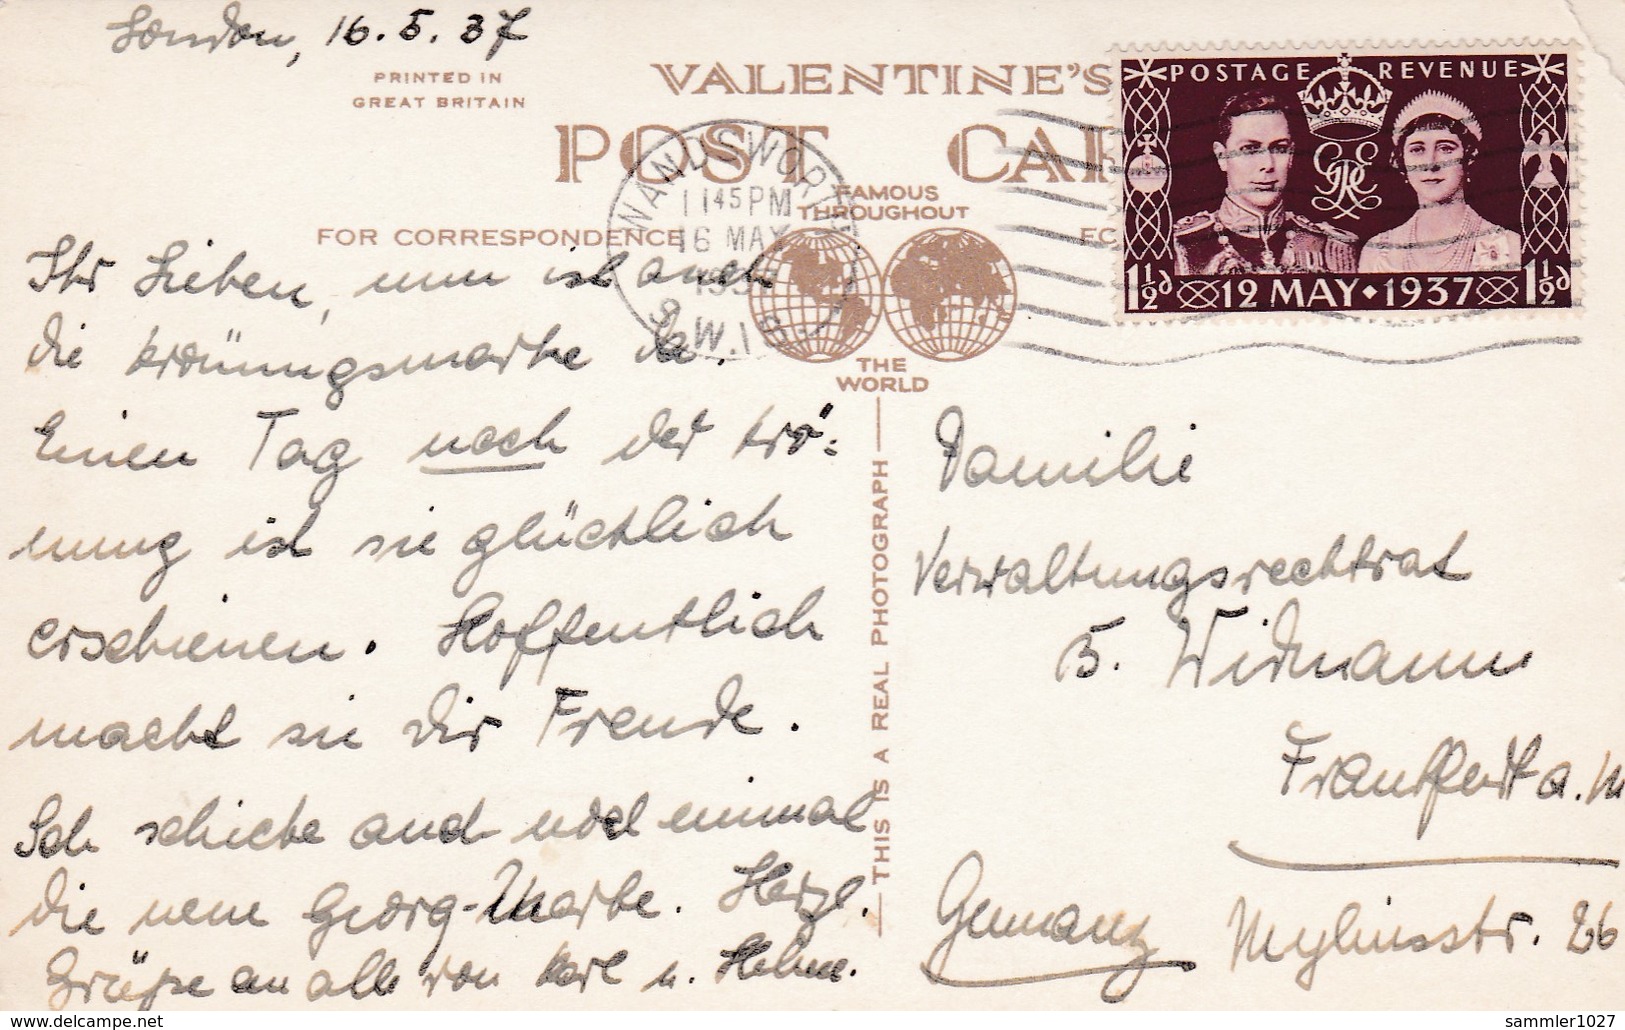 London, 16.5.37
PRINTED IN
GREAT BRITAIN
VALENTINE'S
POST CAR
FAMOUS
THROUGHOUT
THE
WORLD
FOR CORRESPONDENCE
FO
WANDSWORTH
1145PM
16 MAY
1937
S.W.18
POSTAGE REVENUE
1½d 12 MAY • 1937 1½d
Ihr Lieben, nun ist auch
die Krönungsmarke da.
Einen Tag noch der Krö:
nung ist sie glücklich
erschienen. Hoffentlich
macht sie Dir Freude.
Ich schicke auch noch einmal
die neue Georg-Marke. Herzl.
Grüße an alle von Karl u.
THIS IS A REAL PHOTOGRAPH
Familie
Verwaltungsrechtsrat
B. Widmann
Frankfurt a. M
Germany Myliusstr. 26
delcampe.net
sammler1027